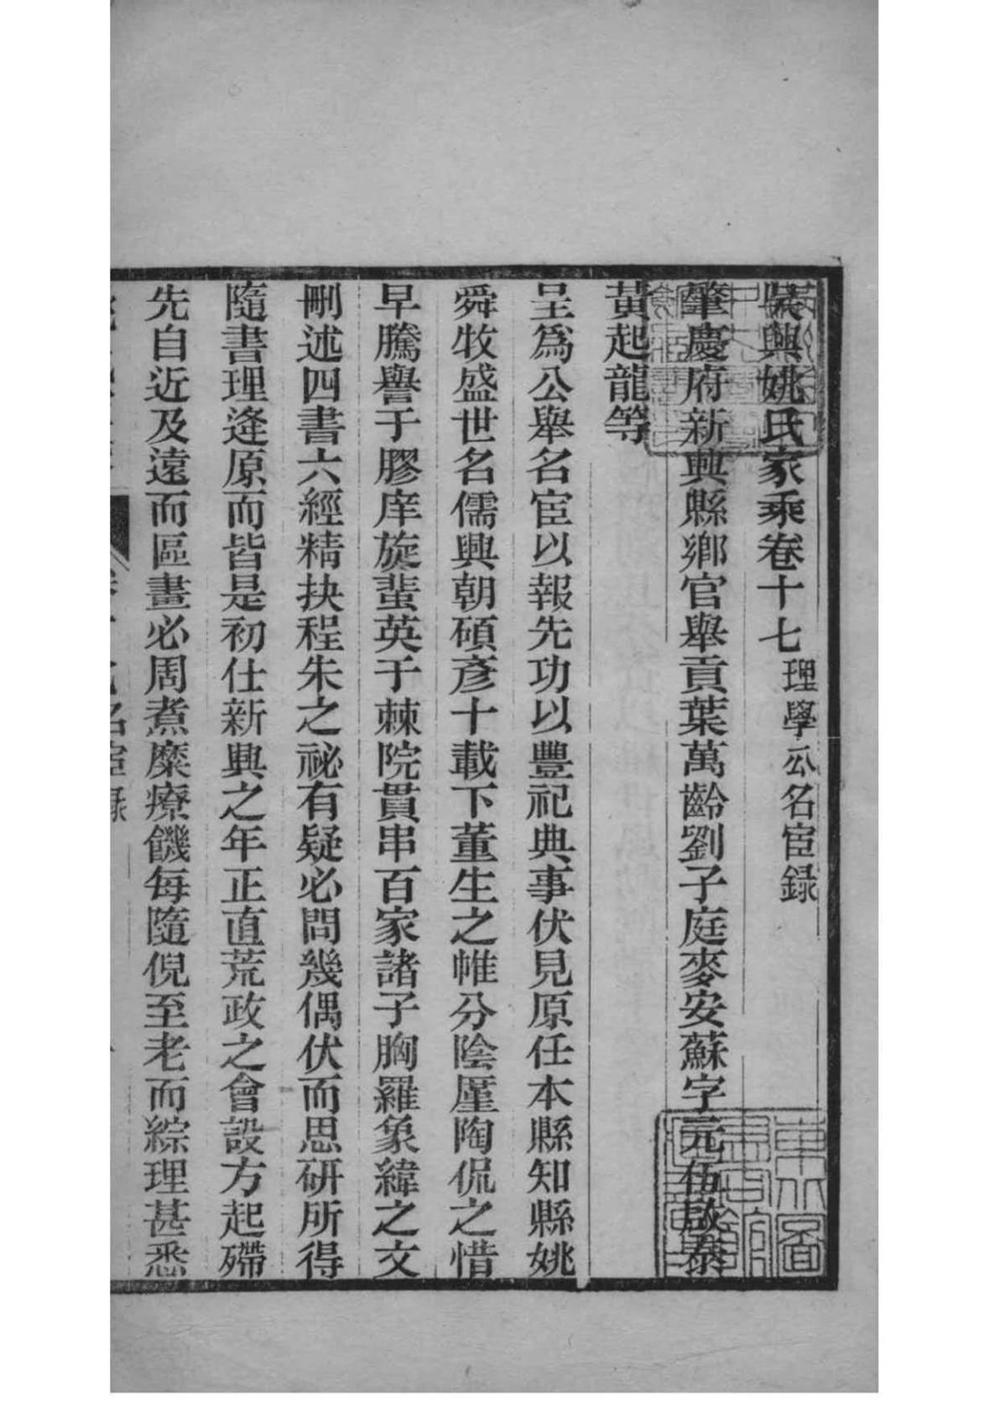 吳興姚氏家乘卷十七 理學公名宦錄
肇慶府新興縣鄉官舉貢葉萬齡劉子庭麥安蘇字元伍啟泰
黃起龍等
呈爲公舉名宦以報先功以豐祀典事伏見原任本縣知縣姚
舜牧盛世名儒興朝碩彥十載下董生之帷分陰厪陶侃之惜
早騰譽于膠庠旋蜚英于棘院貫串百家諸子胸羅象緯之文
刪述四書六經精抉程朱之祕有疑必問幾偶伏而思研所得
隨書理逢原而皆是初仕新興之年正直荒政之會設方起殢
先自近及遠而區畫必周煮糜療饑每隨倪至老而綜理甚悉